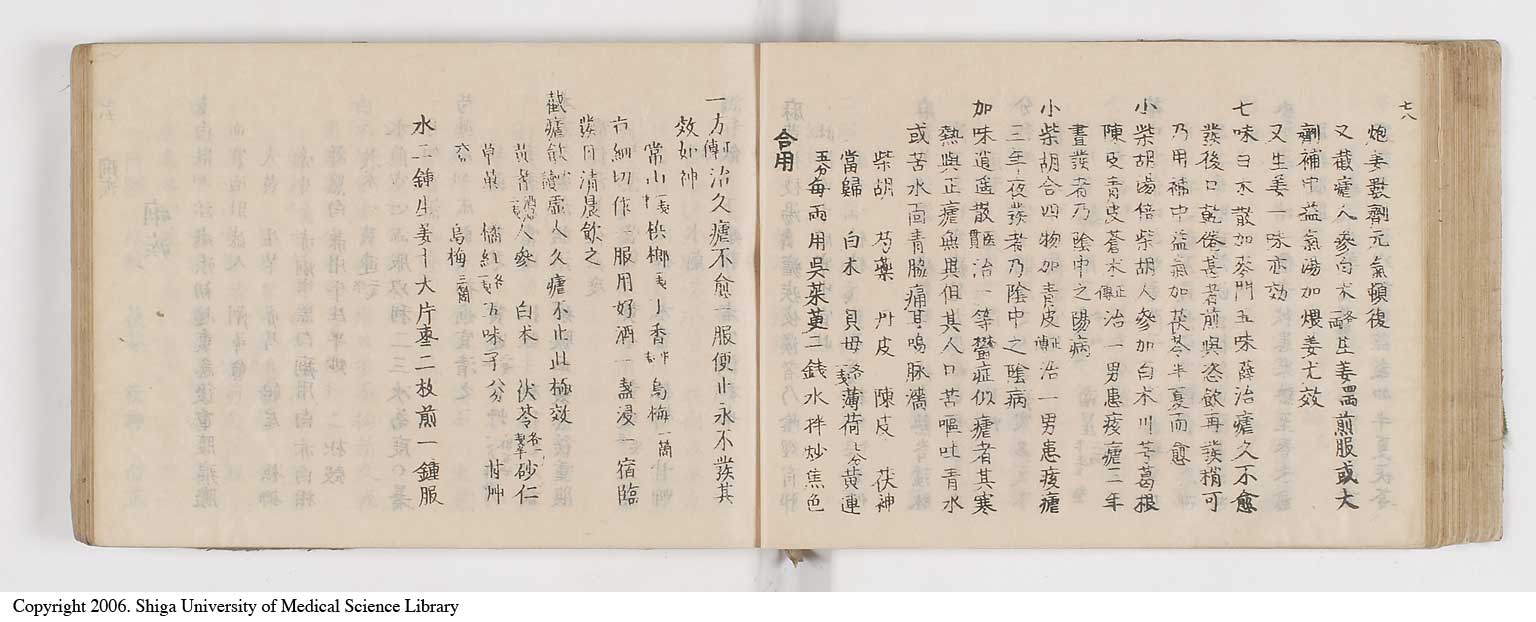 七八
炮姜數劑元氣頓復
又截瘧人參白朮各生姜四兩煎服或大
劑補中益氣湯加煨姜尤效
又生姜一味亦効
七味白朮散加麥門五味薛治瘧久不愈
發後口乾倦甚者前與恣飲再發稍可
乃用補中益氣加茯苓半夏而愈
小柴胡湯倍柴胡人參加白朮川芎葛根
陳皮青皮蒼朮正傳治一男患痎瘧二年
晝發者乃陰中之陽病
小柴胡合四物加青皮正傳治一男患痎瘧
三年夜發者乃陰中之陰病
加味逍遙散醫貫治一等鬱症似瘧者其寒
熱與正瘧無異但其人口苦嘔吐青水
或苦水面青脇痛耳鳴脉濇
柴胡 芍藥 丹皮 陳皮 茯神
當歸 白朮 貝母各薄荷七分黃連
五分每兩用吳茱萸二錢水拌炒焦色
合用
一方正傳治久瘧不愈一服便止永不發其
效如神
常山 檳榔 丁香 烏梅一箇
右細切作一服用好酒一盞浸一宿臨
發日清晨飲之
截瘧飲 虛人久瘧不止此極效
黃耆 人參 白朮 伏苓 砂仁
草菓 橘紅 五味子 甘艸
烏梅三箇
水二鍾生姜十大片棗二枚煎一鍾服
Copyright 2006. Shiga University of Medical Science Library